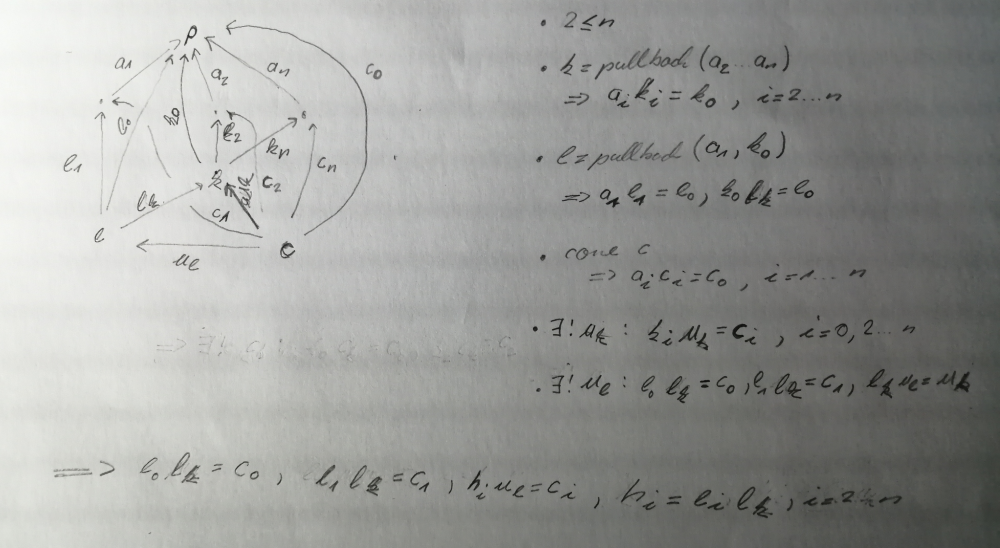 p
a₁
a₂
aₙ
c₀
l₀
k₀
k₂
kₙ
cₙ
l₁
k
c₂
l_k
c₁
l
c
u_l
• 2 ≤ n
• k = pullback (a₂ … aₙ)
=> aᵢ kᵢ = k₀ , i = 2 … n
• l = pullback (a₁, k₀)
=> a₁ l₁ = l₀, k₀ l_k = l₀
• cone c
=> aᵢ cᵢ = c₀ , i = 1 … n
• ∃! u_k : kᵢ u_k = cᵢ , i = 0, 2 … n
• ∃! u_l : l₀ l_k = c₀, l₁ l_k = c₁, l_k u_l = u_k
=> l₀ l_k = c₀ , l₁ l_k = c₁ , hᵢ u_l = cᵢ , hᵢ = lᵢ l_k , i = 2 … n